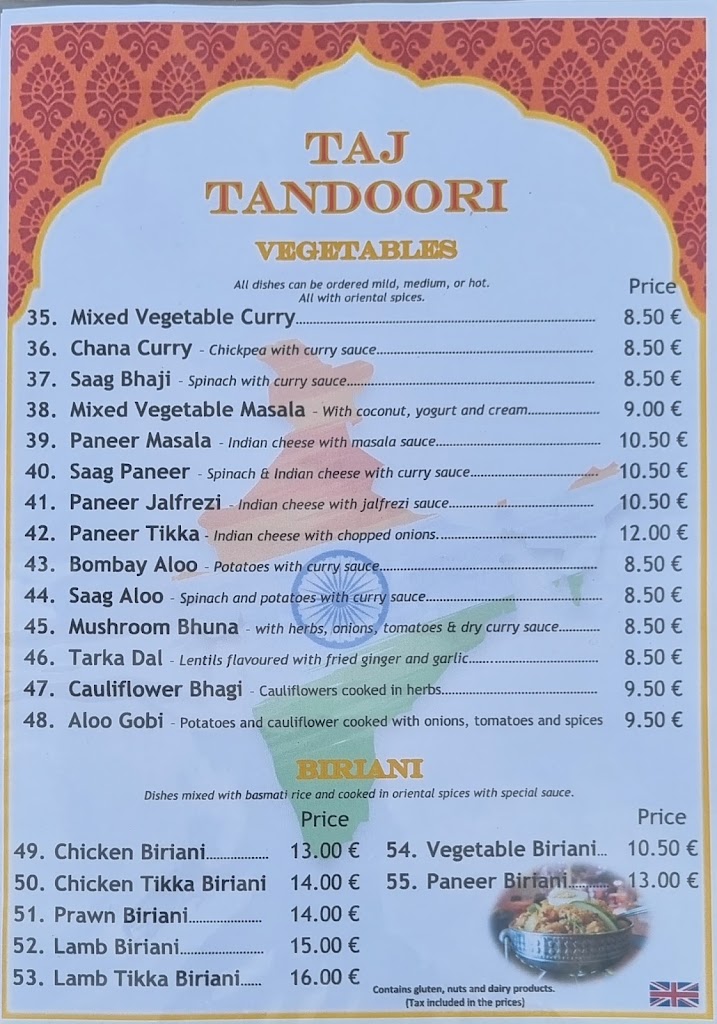 TAJ
TANDOORI
VEGETABLES
All dishes can be ordered mild, medium, or hot.
All with oriental spices.
Price
35. Mixed Vegetable Curry 8.50 €
36. Chana Curry - Chickpea with curry sauce 8.50 €
37. Saag Bhaji - Spinach with curry sauce 8.50 €
38. Mixed Vegetable Masala - With coconut, yogurt and cream 9.00 €
39. Paneer Masala - Indian cheese with masala sauce 10.50 €
40. Saag Paneer - Spinach & Indian cheese with curry sauce 10.50 €
41. Paneer Jalfrezi - Indian cheese with jalfrezi sauce 10.50 €
42. Paneer Tikka - Indian cheese with chopped onions. 12.00 €
43. Bombay Aloo - Potatoes with curry sauce 8.50 €
44. Saag Aloo - Spinach and potatoes with curry sauce 8.50 €
45. Mushroom Bhuna - with herbs, onions, tomatoes & dry curry sauce 8.50 €
46. Tarka Dal - Lentils flavoured with fried ginger and garlic 8.50 €
47. Cauliflower Bhagi - Cauliflowers cooked in herbs 9.50 €
48. Aloo Gobi - Potatoes and cauliflower cooked with onions, tomatoes and spices 9.50 €
BIRIANI
Dishes mixed with basmati rice and cooked in oriental spices with special sauce.
Price
49. Chicken Biriani 13.00 €
50. Chicken Tikka Biriani 14.00 €
51. Prawn Biriani 14.00 €
52. Lamb Biriani 15.00 €
53. Lamb Tikka Biriani 16.00 €
Price
54. Vegetable Biriani 10.50 €
55. Paneer Biriani 13.00 €
Contains gluten, nuts and dairy products.
(Tax included in the prices)